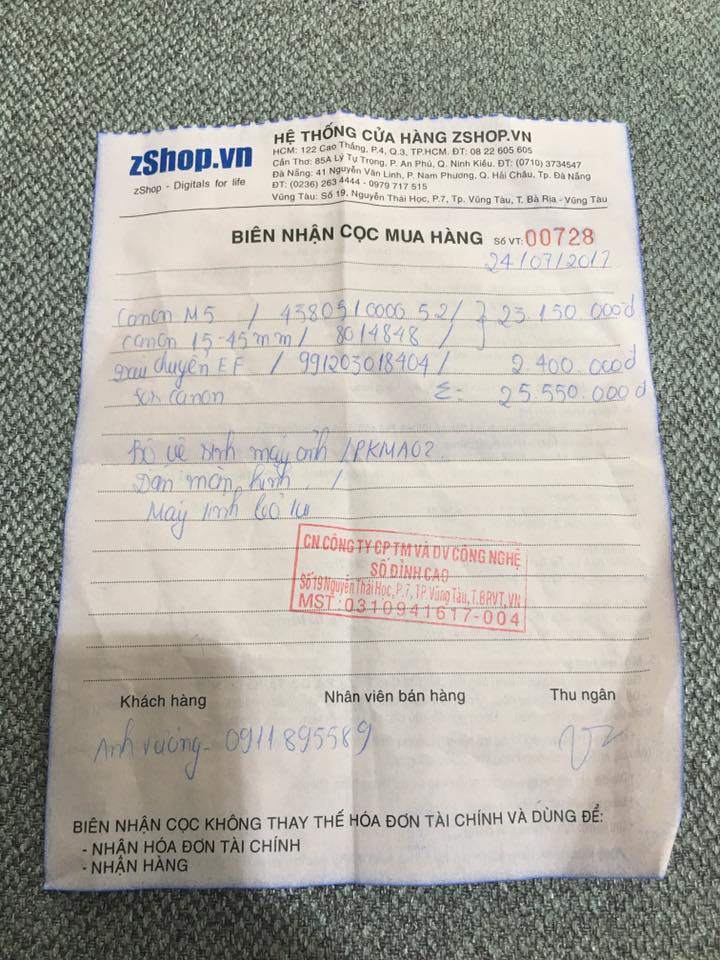 zShop.vn
zShop - Digitals for life
HỆ THỐNG CỬA HÀNG ZSHOP.VN
HCM: 122 Cao Thắng, P.4, Q.3, TP.HCM. ĐT: 08 22 605 605
Cần Thơ: 85A Lý Tự Trọng, P. An Phú, Q. Ninh Kiều. ĐT: (0710) 3734547
Đà Nẵng: 41 Nguyễn Văn Linh, P. Nam Phương, Q. Hải Châu, Tp. Đà Nẵng
ĐT: (0236) 263 4444 - 0979 717 515
Vũng Tàu: Số 19, Nguyễn Thái Học, P.7, Tp. Vũng Tàu, T. Bà Rịa - Vũng Tàu
BIÊN NHẬN CỌC MUA HÀNG SỐ VT: 00728
24/07/2017
Canon M5 / 438051000652 / } 23.150.000đ
Canon 15-45mm / 8014848 /
EF / 991203018404 / 2.400.000đ
canon Σ: 25.550.000đ
Bộ vệ sinh máy ảnh / PKMA02
Dán màn hình /
Máy tính bỏ túi
CN CÔNG TY CP TM VÀ DV CÔNG NGHỆ
SỐ ĐỈNH CAO
Số 19 Nguyễn Thái Học, P.7, TP.Vũng Tàu, T.BRVT, VN
MST: 0310941617-004
Khách hàng Nhân viên bán hàng Thu ngân
Anh Vương - 0911895589
BIÊN NHẬN CỌC KHÔNG THAY THẾ HÓA ĐƠN TÀI CHÍNH VÀ DÙNG ĐỂ:
- NHẬN HÓA ĐƠN TÀI CHÍNH
- NHẬN HÀNG